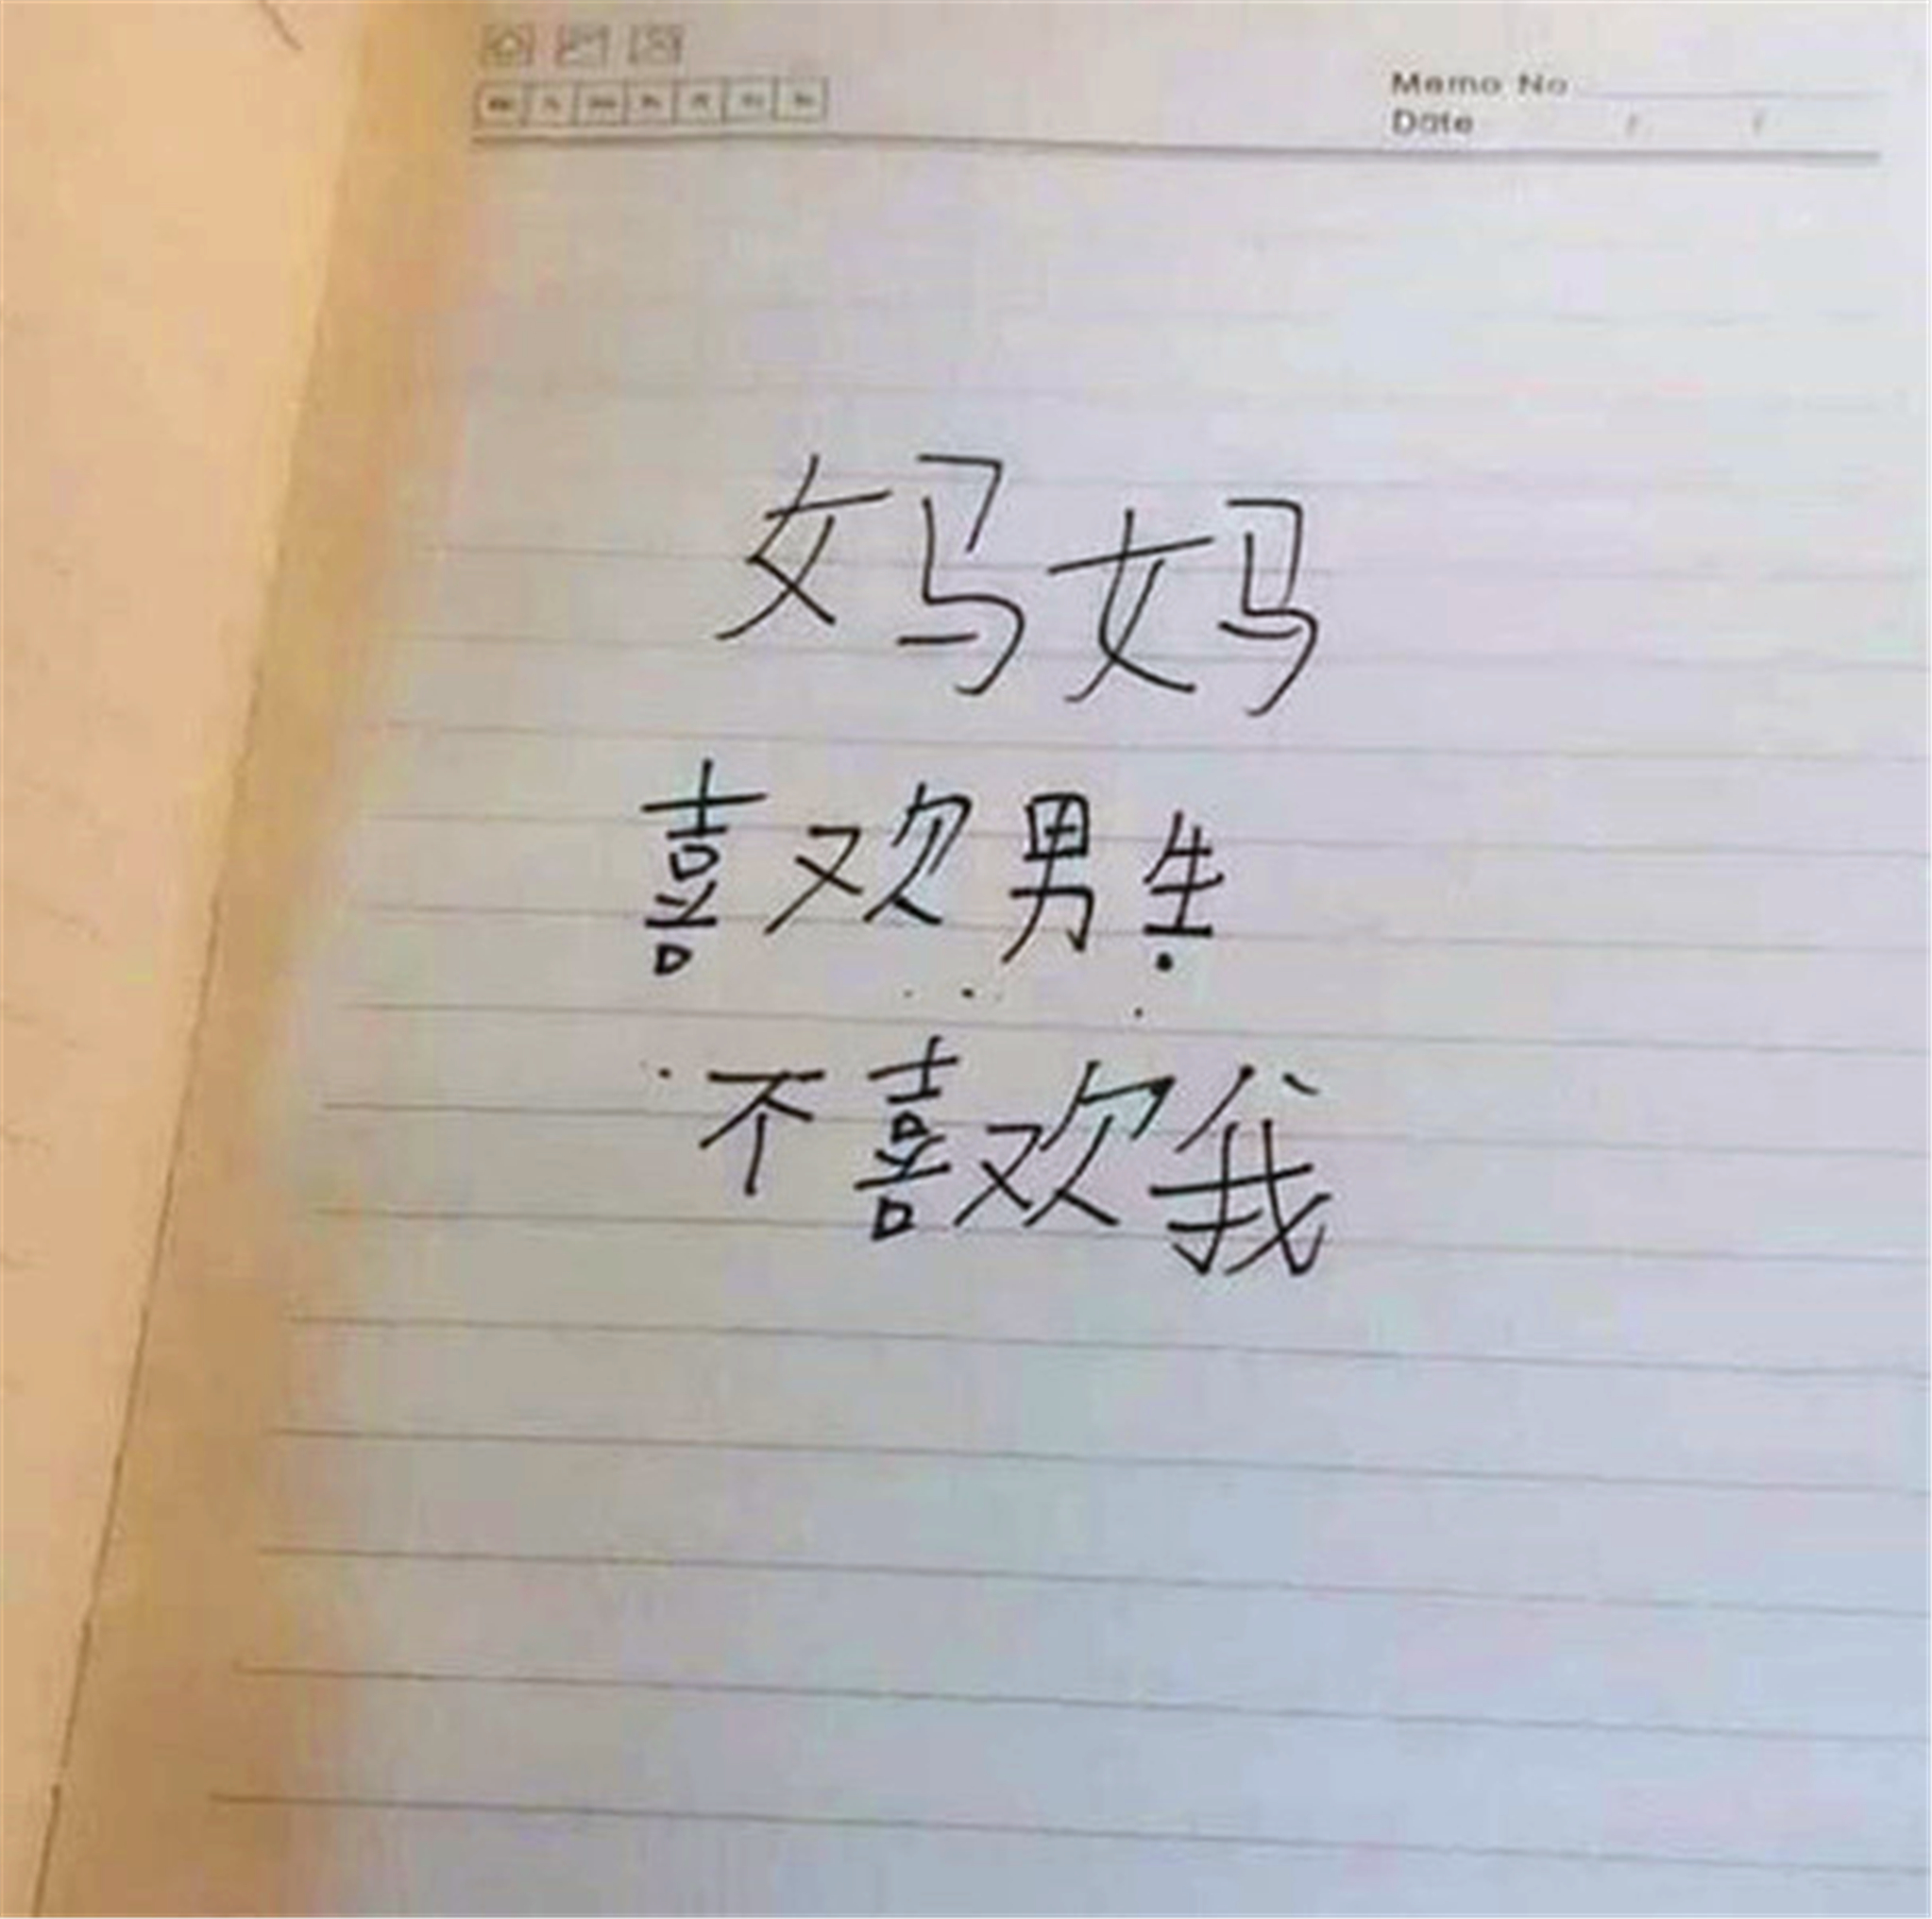 Memo No
Date / /
妈妈
喜欢男生
不喜欢我